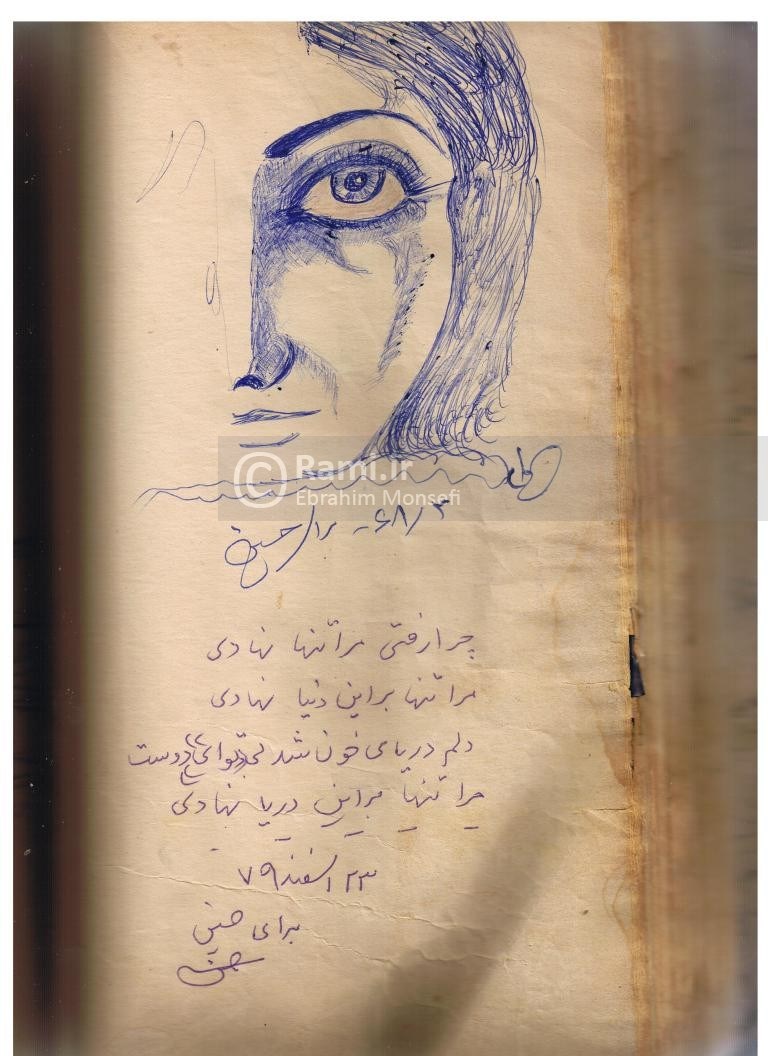 © Rami.ir
Ebrahim Monsefi
۶۸/۳ - برای
چرا رفتی مرا تنها نهادی
مرا تنها بر این دنیا نهادی
دلم دریای خون شد بی تو ای دوست
چرا تنها بر این دریا نهادی
۲۳ اسفند ۷۹
برای